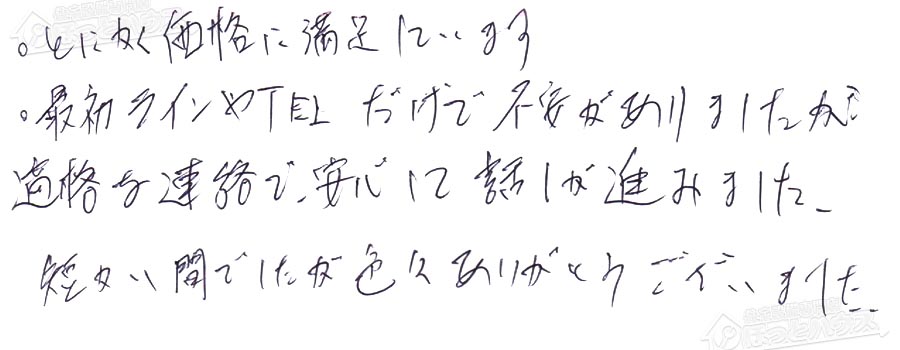 。とにかく価格に満足しています
。最初ラインやTEL だけで不安がありましたが
適格な連絡で、安心して話しが進みました。
短かい間でしたが色々ありがとうございました。